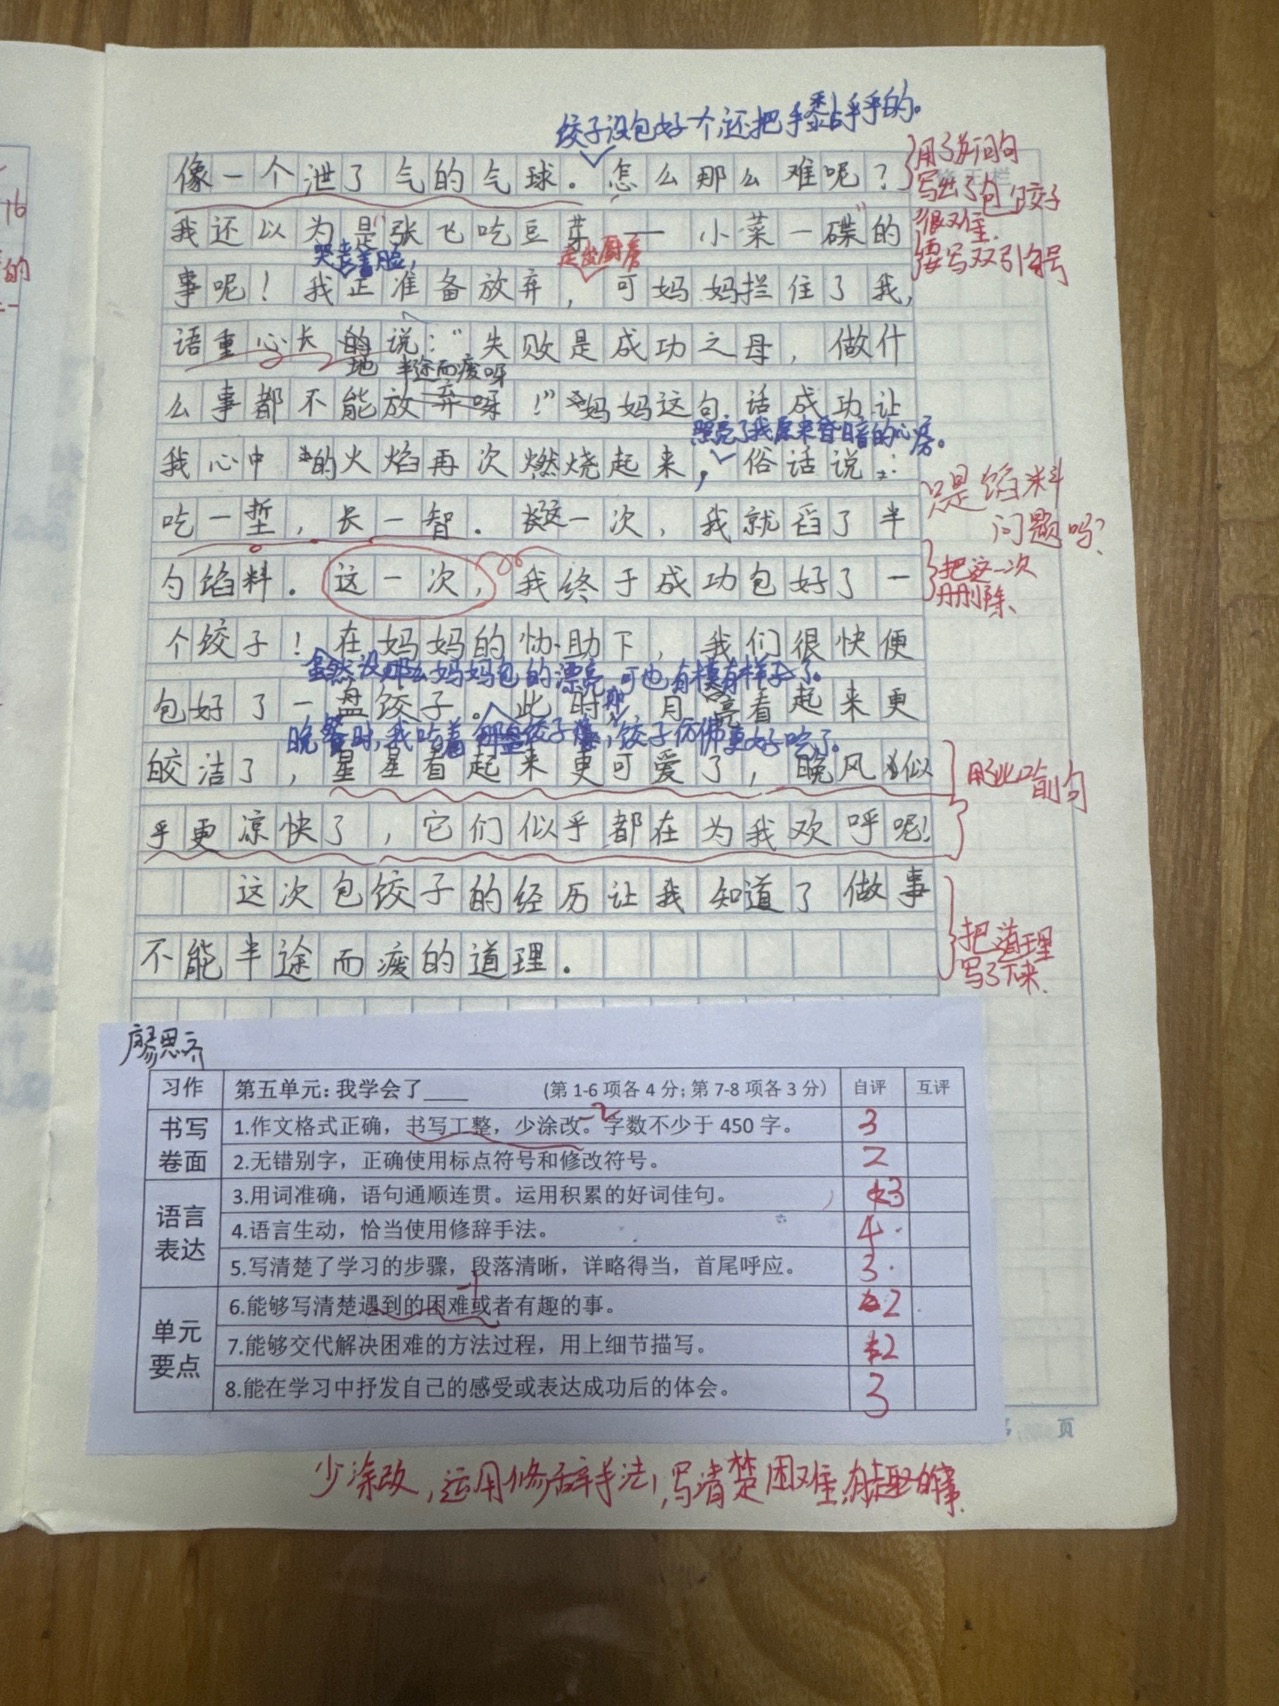 饺子没包好一个,还把手黏乎乎的。
像一个泄了气的气球。怎么那么难呢?
用了疑问句
写出了包饺子
很难.
要写双引号
我还以为是"张飞吃豆芽——小菜一碟"的
哭丧着脸,
走出厨房
事呢!我正准备放弃,可妈妈拦住了我,
语重心长的说:"失败是成功之母,做什
地 半途而废呀
么事都不能放弃呀!"妈妈这句话成功让
照亮了我原来昏暗的心房。
我心中的火焰再次燃烧起来,俗话说:
只是馅料
问题吗?
吃一堑,长一智.这一次,我就舀了半
勺馅料.这一次,我终于成功包好了一
把这一次
删除、
个饺子!在妈妈的协助下,我们很快便
虽然没那么妈妈包的漂亮,可也有模有样了。
包好了一盘饺子.此时,月亮看起来更
晚餐时,我吃着那盘饺子,饺子仿佛更好吃了。
皎洁了,星星看起来更可爱了,晚风似
用了排比句
乎更凉快了,它们似乎都在为我欢呼呢!
这次包饺子的经历让我知道了做事
不能半途而废的道理.
把道理
写了下来.
廖思齐
习作 第五单元:我学会了____ (第1-6项各4分;第7-8项各3分) 自评 互评
书写卷面 1.作文格式正确,书写工整,少涂改。字数不少于450字。 -2 3
2.无错别字,正确使用标点符号和修改符号。 2
语言表达 3.用词准确,语句通顺连贯。运用积累的好词佳句。 3
4.语言生动,恰当使用修辞手法。 4
5.写清楚了学习的步骤,段落清晰,详略得当,首尾呼应。 3
单元要点 6.能够写清楚遇到的困难或者有趣的事。 -1 2
7.能够交代解决困难的方法过程,用上细节描写。 2
8.能在学习中抒发自己的感受或表达成功后的体会。 3
少涂改,运用修辞手法,写清楚困难,有趣的事.